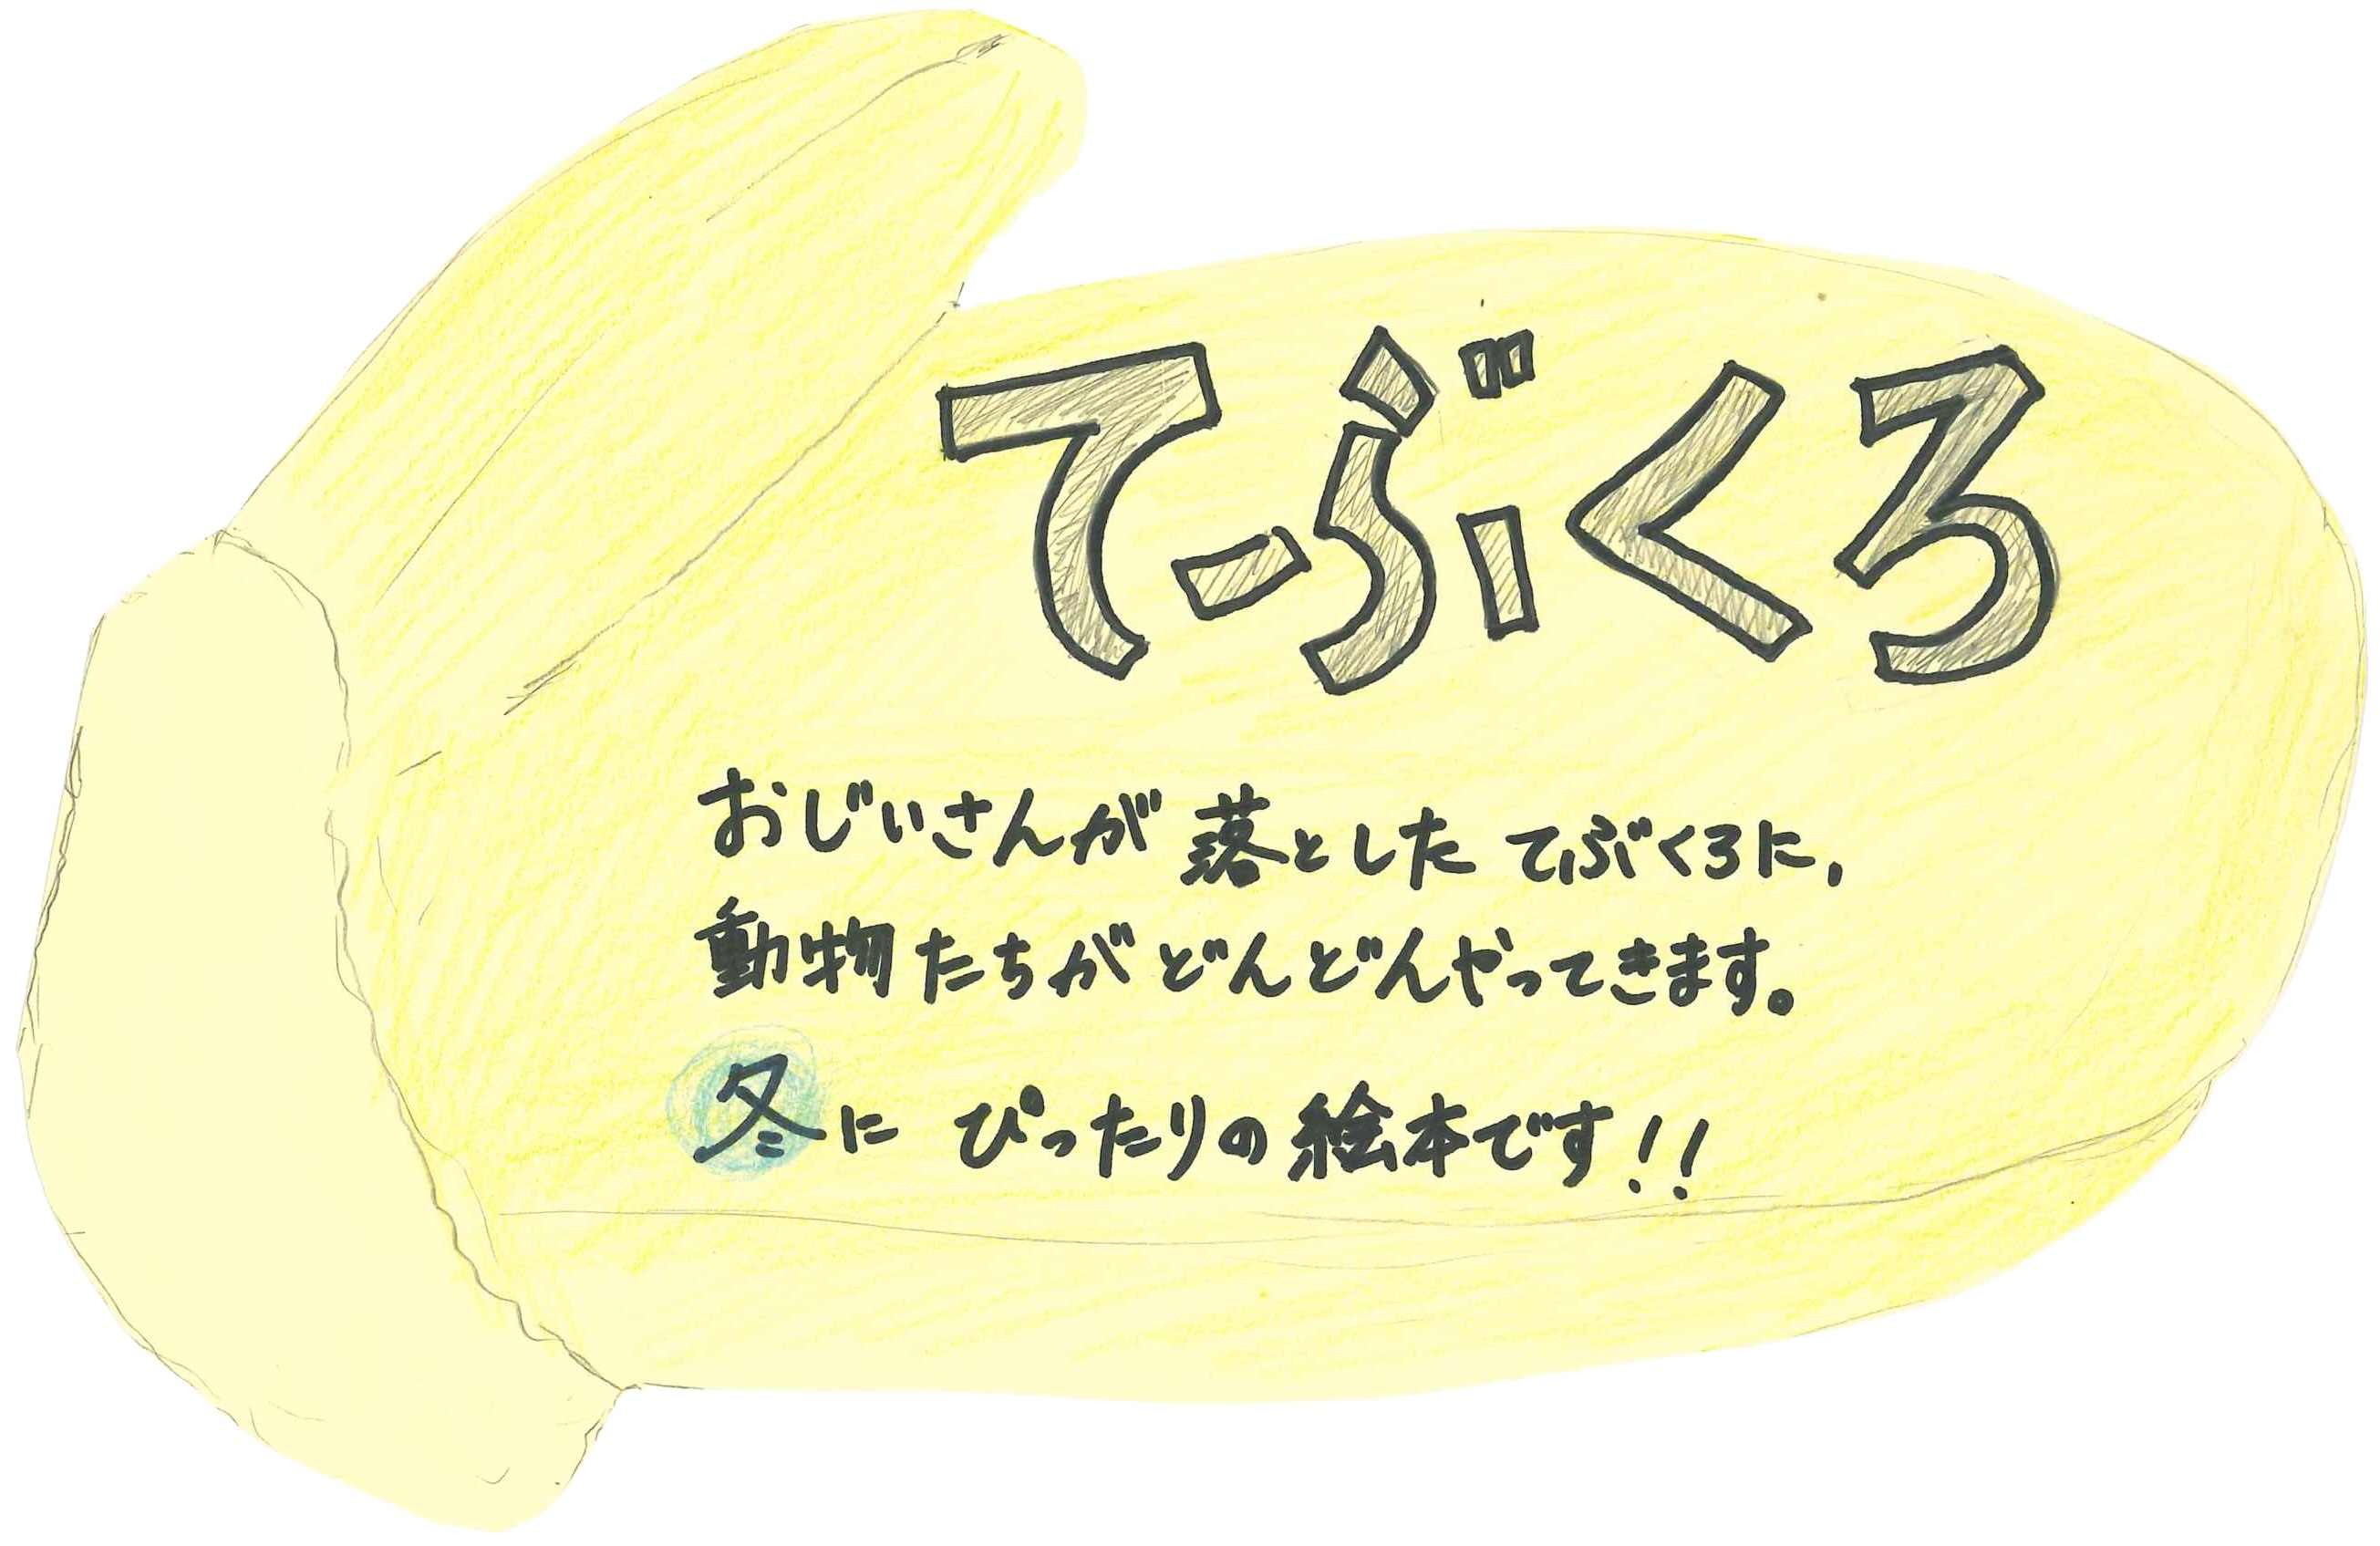 てぶくろ
おじいさんが 落とした てぶくろに,
動物たちが どんどんやってきます。
冬に ぴったりの絵本です!!